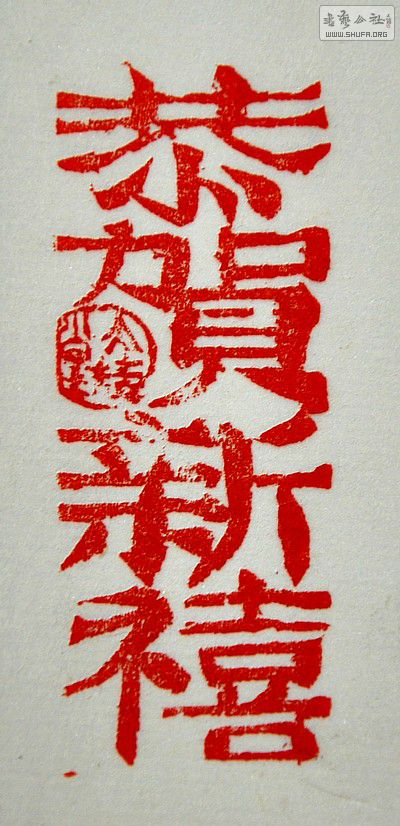 恭賀新禧
書藝公社
WWW.SHUFA.ORG